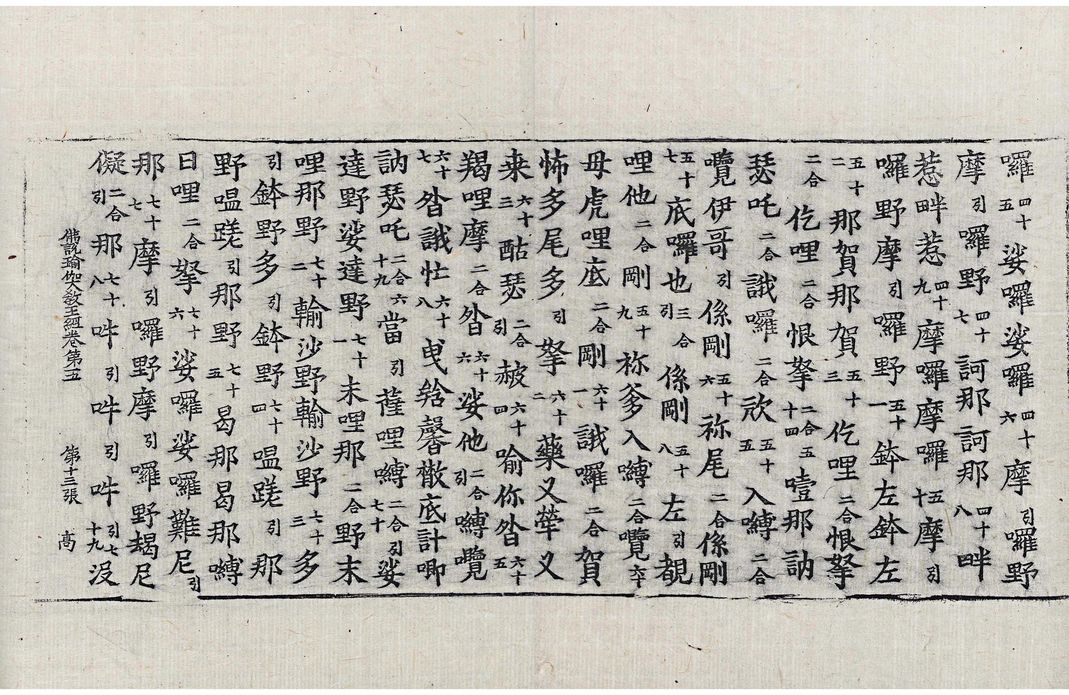 囉四十五娑囉娑囉四十六摩引囉野
摩引囉野四十七訶那訶那四十八畔
惹畔惹四十九摩囉摩囉五十摩引
囉野摩引囉野五十一鉢左鉢左
五十二那賀那賀五十三仡哩二合恨拏
二合仡哩二合恨拏二合五十四噎那訥
瑟吒二合誐囉二合㰤五十五入嚩二合
覽伊哥引係剛五十六祢尾二合係剛
五十七底囉也三合引係剛五十八左引覩
哩他二合剛五十九祢爹入嚩二合覽六十
母虎哩底二合剛六十一誐囉二合賀
怖多尾多引拏六十二藥叉犖叉
来六十三酤瑟二合引赧六十四喻你呰六十五
羯哩摩二合呰六十六娑他二合引嚩覽
六十七呰誐忙六十八曵䬃馨橵底計唧
訥瑟吒二合六十九當引蕯哩嚩二合引七十娑
達野娑達野七十一末哩那二合野末
哩那野七十二輸沙野輸沙野七十三多
引鉢野多引鉢野七十四嗢蹉引那
野嗢蹉引那野七十五曷那曷那嚩
日哩二合拏七十六娑囉娑囉難尼引
那七十七摩引囉野摩引囉野朅尼
儗二合引那七十八吽引吽引吽引七十九沒
佛說瑜伽大教王經卷第五 第十三張 高